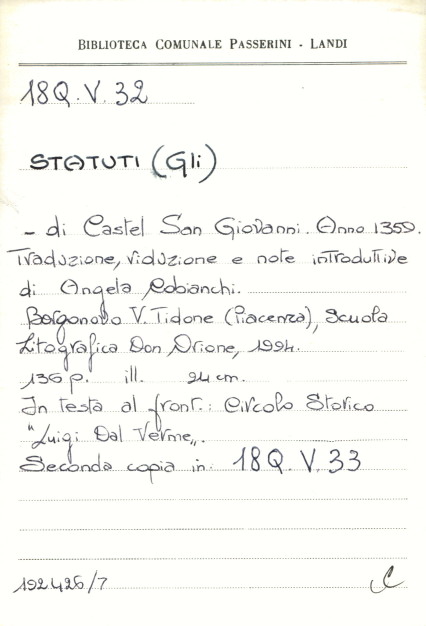 BIBLIOTECA COMUNALE PASSERINI - LANDI
18Q.V.32
STATUTI (Gli)
- di Castel San Giovanni. Anno 1359.
Traduzione, riduzione e note introduttive
di Angela Robianchi.
Borgonovo V. Tidone (Piacenza), Scuola
Litografica Don Orione, 1994.
136 p. ill. 24 cm.
In testa al front.: Circolo Storico
"Luigi Dal Verme„.
Seconda copia in: 18Q.V.33
192426/7